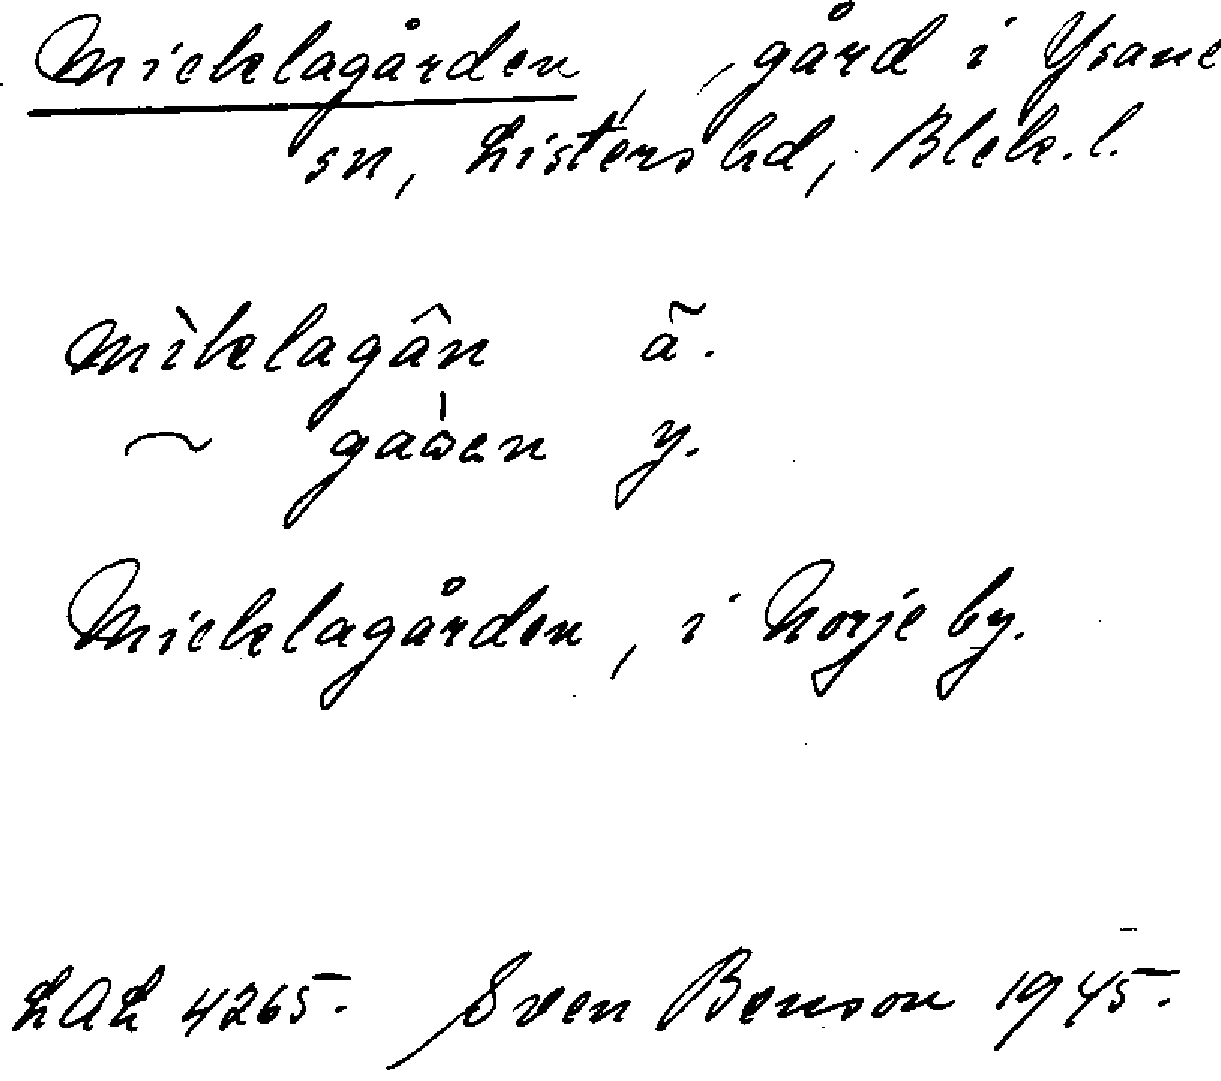 Micklagården, gård i Ysane
sn, Listers hd, Blek. l.
mìklagân ã.
~ gaɷ̍en y.
Micklagården, i Norje by.
LAL 4265. Sven Benson 1945.